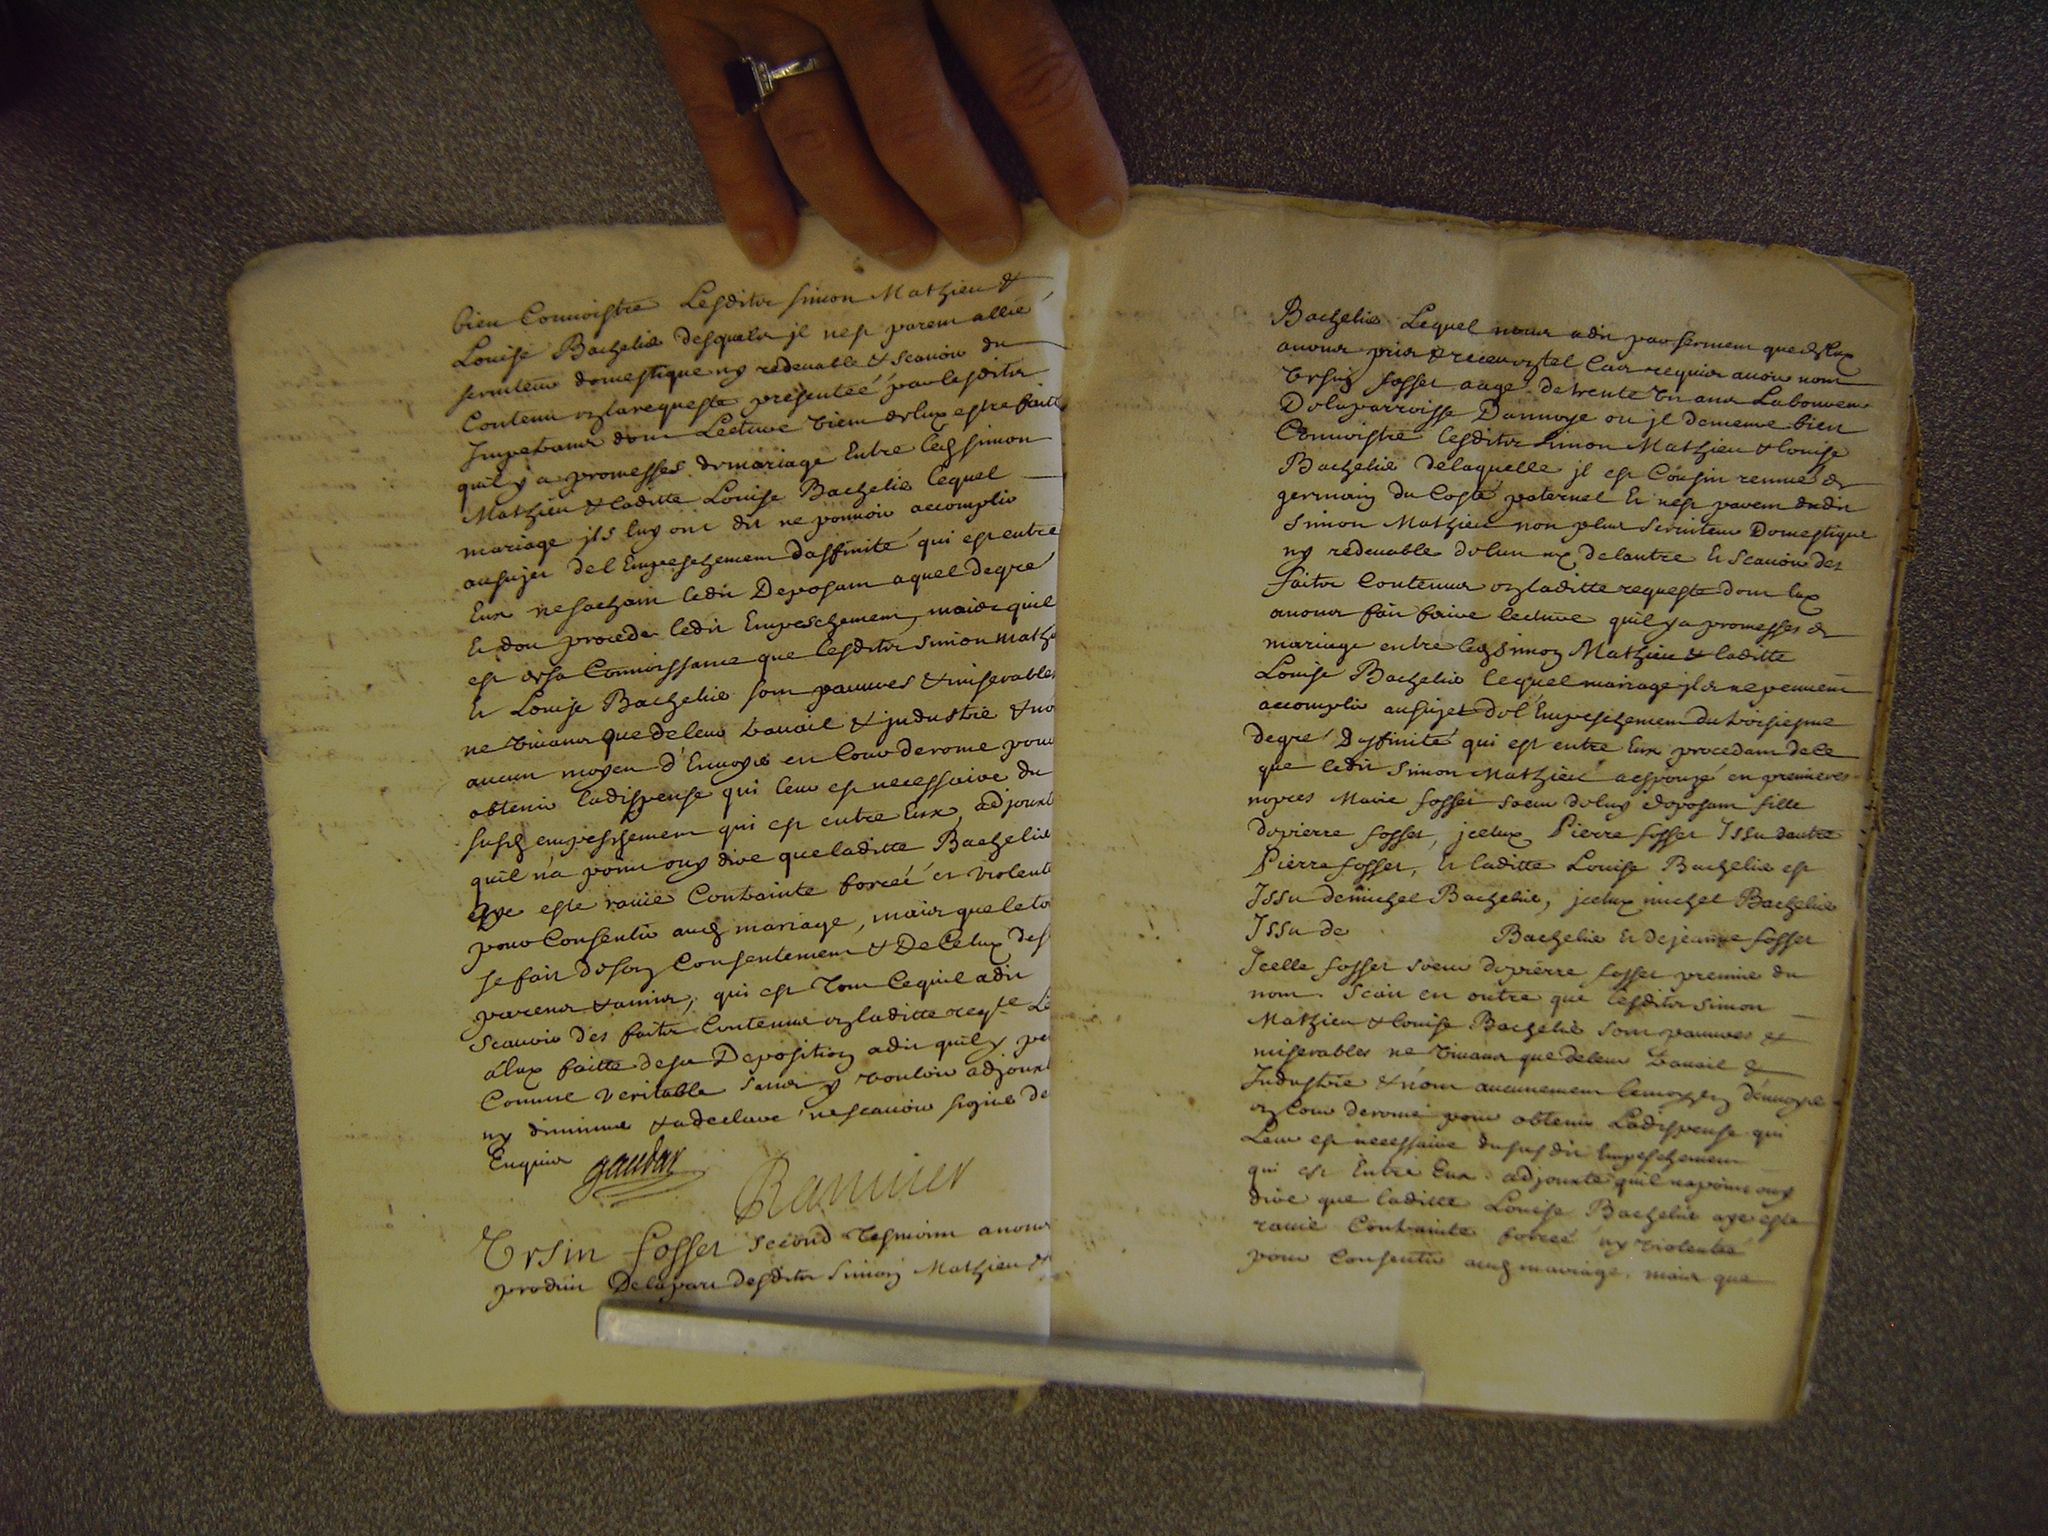 bien Connoistre Lesdits simon Mathieu &
Louise Bachelie desquels jl nest parent allié
serviteur domestique ny redevable & scavoir du
Contenu en la requeste presenteé par lesdits
Impetrans dont Lecture vient de luy estre faitte
quil y a promesses de mariage Entre led simon
Mathieu & laditte Louise Bachelie lequel
mariage jls luy ont dit ne pouvoir accomplir
au sujet de l Empeschement daffinité qui est entre
Eux ne sachant ledit Deposant a quel degré
Et dou procede ledit Empeschement, mais quil
est de sa Connoissance que lesdits simon Mathi
Et Louise Bachelie sont pauvres & miserables
ne vivans que de leur travail & judustrie & no
aucun moyen d'Envoyer en Cour de rome pour
obtenir la dispense qui leur est necessaire du
susd empeschement qui est entre Eux, adjouxt
quil n'a point ouy dire que laditte Bachelie
aye esté ravie Contrainte forcée et violenté
pour Consentir aud mariage, mais que le to
se fait de son Consentement & De Celuy des
parens & amis, qui est tout Ce quil a dit
scavoir des faits Contenus en laditte reqte Le
a luy faitte de sa Deposition a dit quil y pe
Comme veritable sans y vouloir adjoux
ny diminuer & a declaré ne scavoir signer de
Enquis gaudar
Rannier
Vrsin fosset second tesmoin a nous
produit De la part desdits simon Mathieu &
Bachelie Lequel nous a dit par serment que de luy
avons pris & receu en tel Cas requis avoir nom
Vrsin fosset aagé de trente Vn ans Laboureur
De la parroisse Dannoye ou jl demeure bien
Connoistre lesdits simon Mathieu & louise
Bachelie de laquelle jl est Cousin remué de
germain du Costé paternel Et nest parent dudit
simon Mathieu non plus serviteur Domestique
ny redevable de lun ny de lautre Et scavoir des
faits Contenus en laditte requeste dont luy
avons fait faire lecture quil y a promesses de
mariage entre led simon Mathieu & laditte
Louise Bachelie lequel mariage jls ne peuvent
accomplir au sujet de l'Empeschement du troisiesme
degré Daffinité qui est entre Eux procedant de ce
que ledit simon Mathieu a espouzé en premieres
nopces Marie fosset soeur de luy deposant fille
de pierre fosset, jceluy Pierre fosset Issu dautre
Pierre fosset, Et laditte Louise Bachelie est
Issu de michel Bachelie, jceluy michel Bachelie
Issu de Bachelie Et de jeanne fosset
Icelle fosset soeur de pierre fosset premier du
nom. scait en outre que lesdits simon
Mathieu & louise Bachelie sont pauvres &
miserables ne vivans que de leur travail &
Industrie & n'ont aucunement le moyen d'envoyer
en Cour de rome pour obtenir La dispense qui
Leur est necessaire du susdit Empeschement
qui est Entre Eux. adjouxte quil na point ouy
dire que laditte Louise Bachelie aye esté
ravie Contrainte forceé ny violenteé
pour Consentir aud mariage, mais que